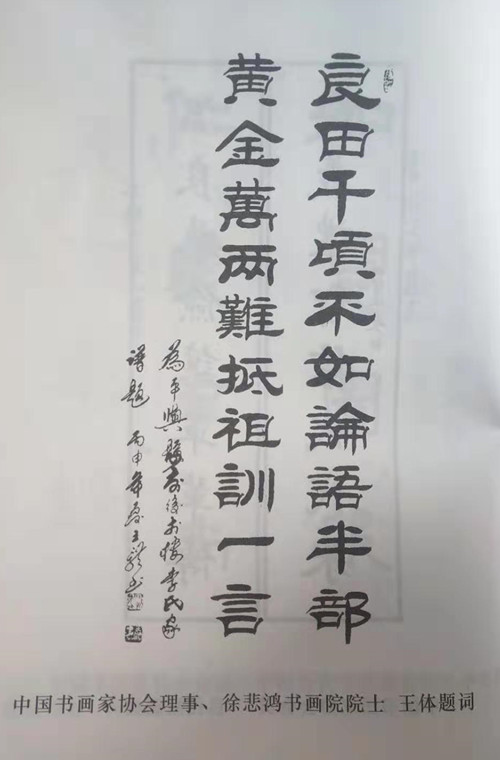 良田千頃不如論語半部
黄金萬两難抵祖訓一言
為平輿縣樓李氏家
譜題 丙申年夏王书
中国书画家协会理事、徐悲鸿书画院院士 王体题词